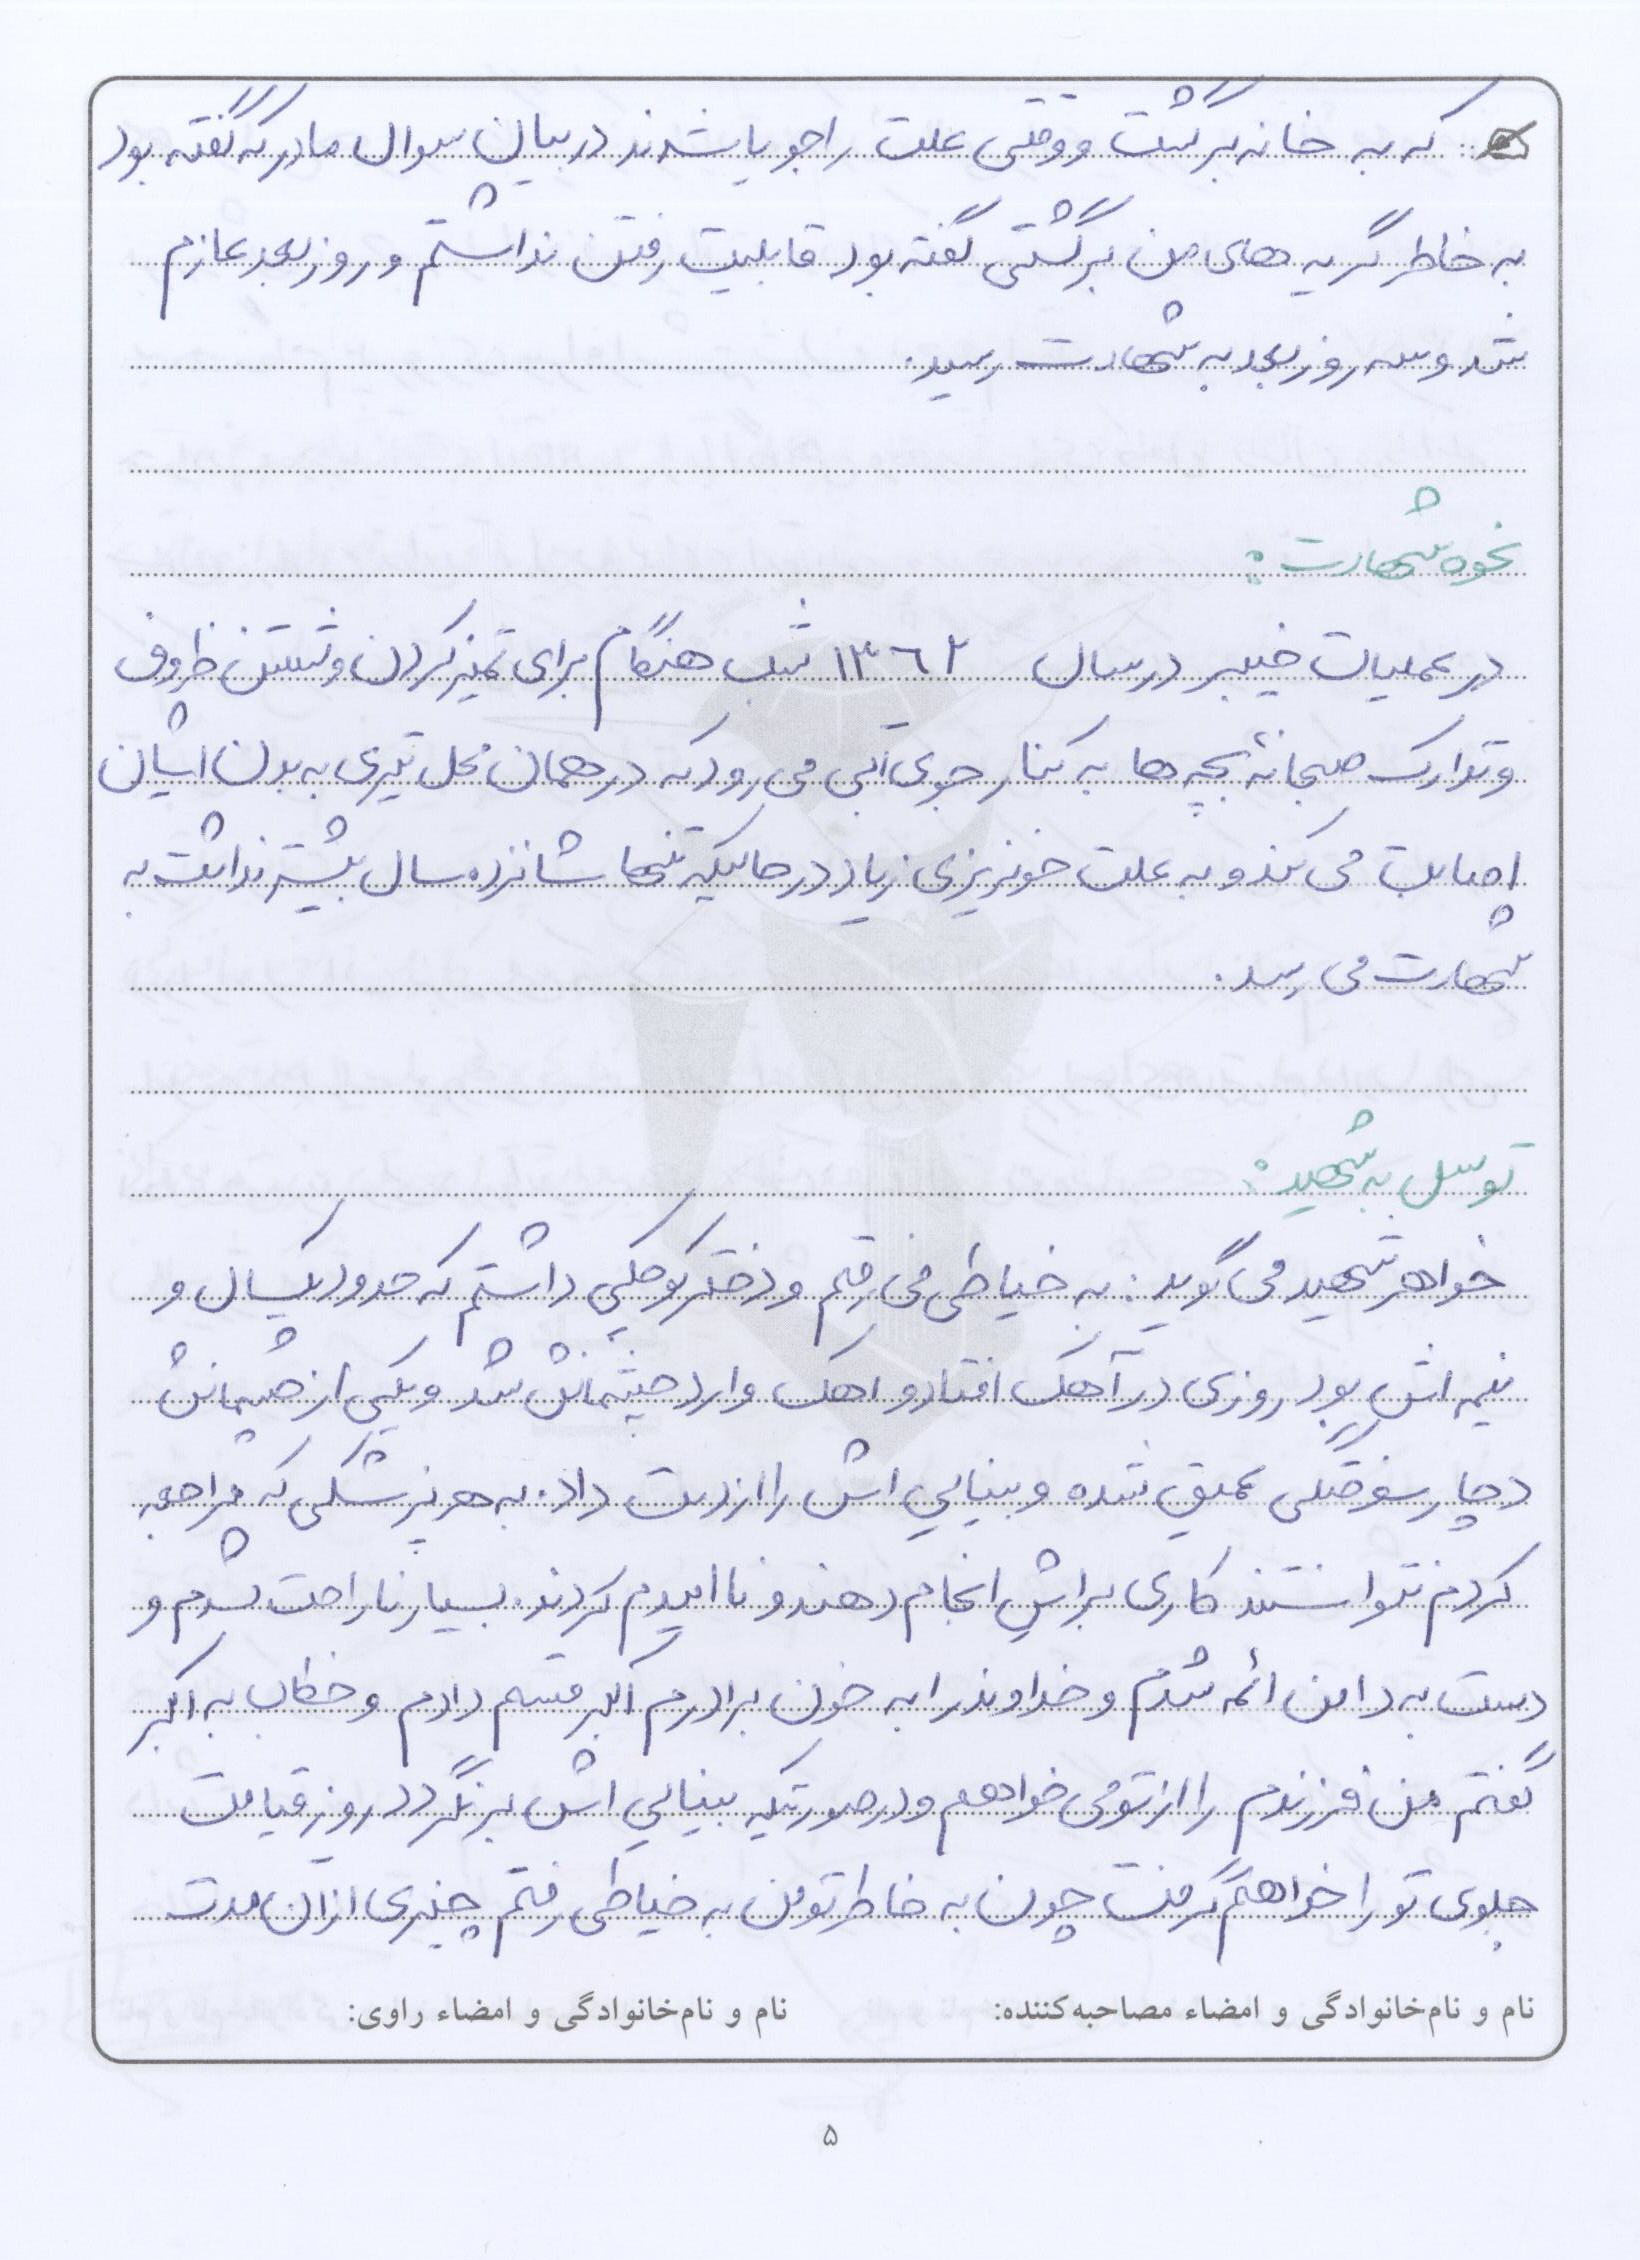 که به خانه برگشت و وقتی علت را جویا شدند در بیان سوال مادر که گفته بود
به خاطر گریه های من برگشتی گفته بود قابلیت رفتن نداشتم و روز بعد عازم
شد و سه روز بعد به شهادت رسید.
نحوه شهادت:
در عملیات خیبر در سال ۱۳۶۲ شب هنگام برای تمیز کردن و شستن ظروف
و تدارک صبحانه بچه ها به کنار جوی آبی می رود که در همان محل تیری به بدن ایشان
اصابت می کند و به علت خونریزی زیاد در حالیکه تنها شانزده سال بیشتر نداشت به
شهادت می رسد.
توسل به شهید:
خواهر شهید می گوید: به خیاطی می رفتم و دختر کوچکی داشتم که حدود یکسال و
نیمه اش بود روزی در آهک افتاد و اهک وارد چشمانش شد و یکی از چشمانش
دچار سوختگی عمیق شده و بینایی اش را از دست داد. به هر پزشکی که مراجعه
کردم نتوانستند کاری براش انجام دهند و ناامیدم کردند. بسیار ناراحت شدم و
دست به دامن ائمه شدم و خداوند را به خون برادرم اکبر قسم دادم و خطاب به اکبر
گفتم من فرزندم را از تو می خواهم و در صورتیکه بینایی اش برنگردد روز قیامت
جلوی تو را خواهم گرفت چون به خاطر تو من به خیاطی رفتم چیزی از ان مدت
نام و نام‌خانوادگی و امضاء مصاحبه‌کننده: نام و نام‌خانوادگی و امضاء راوی:
۵